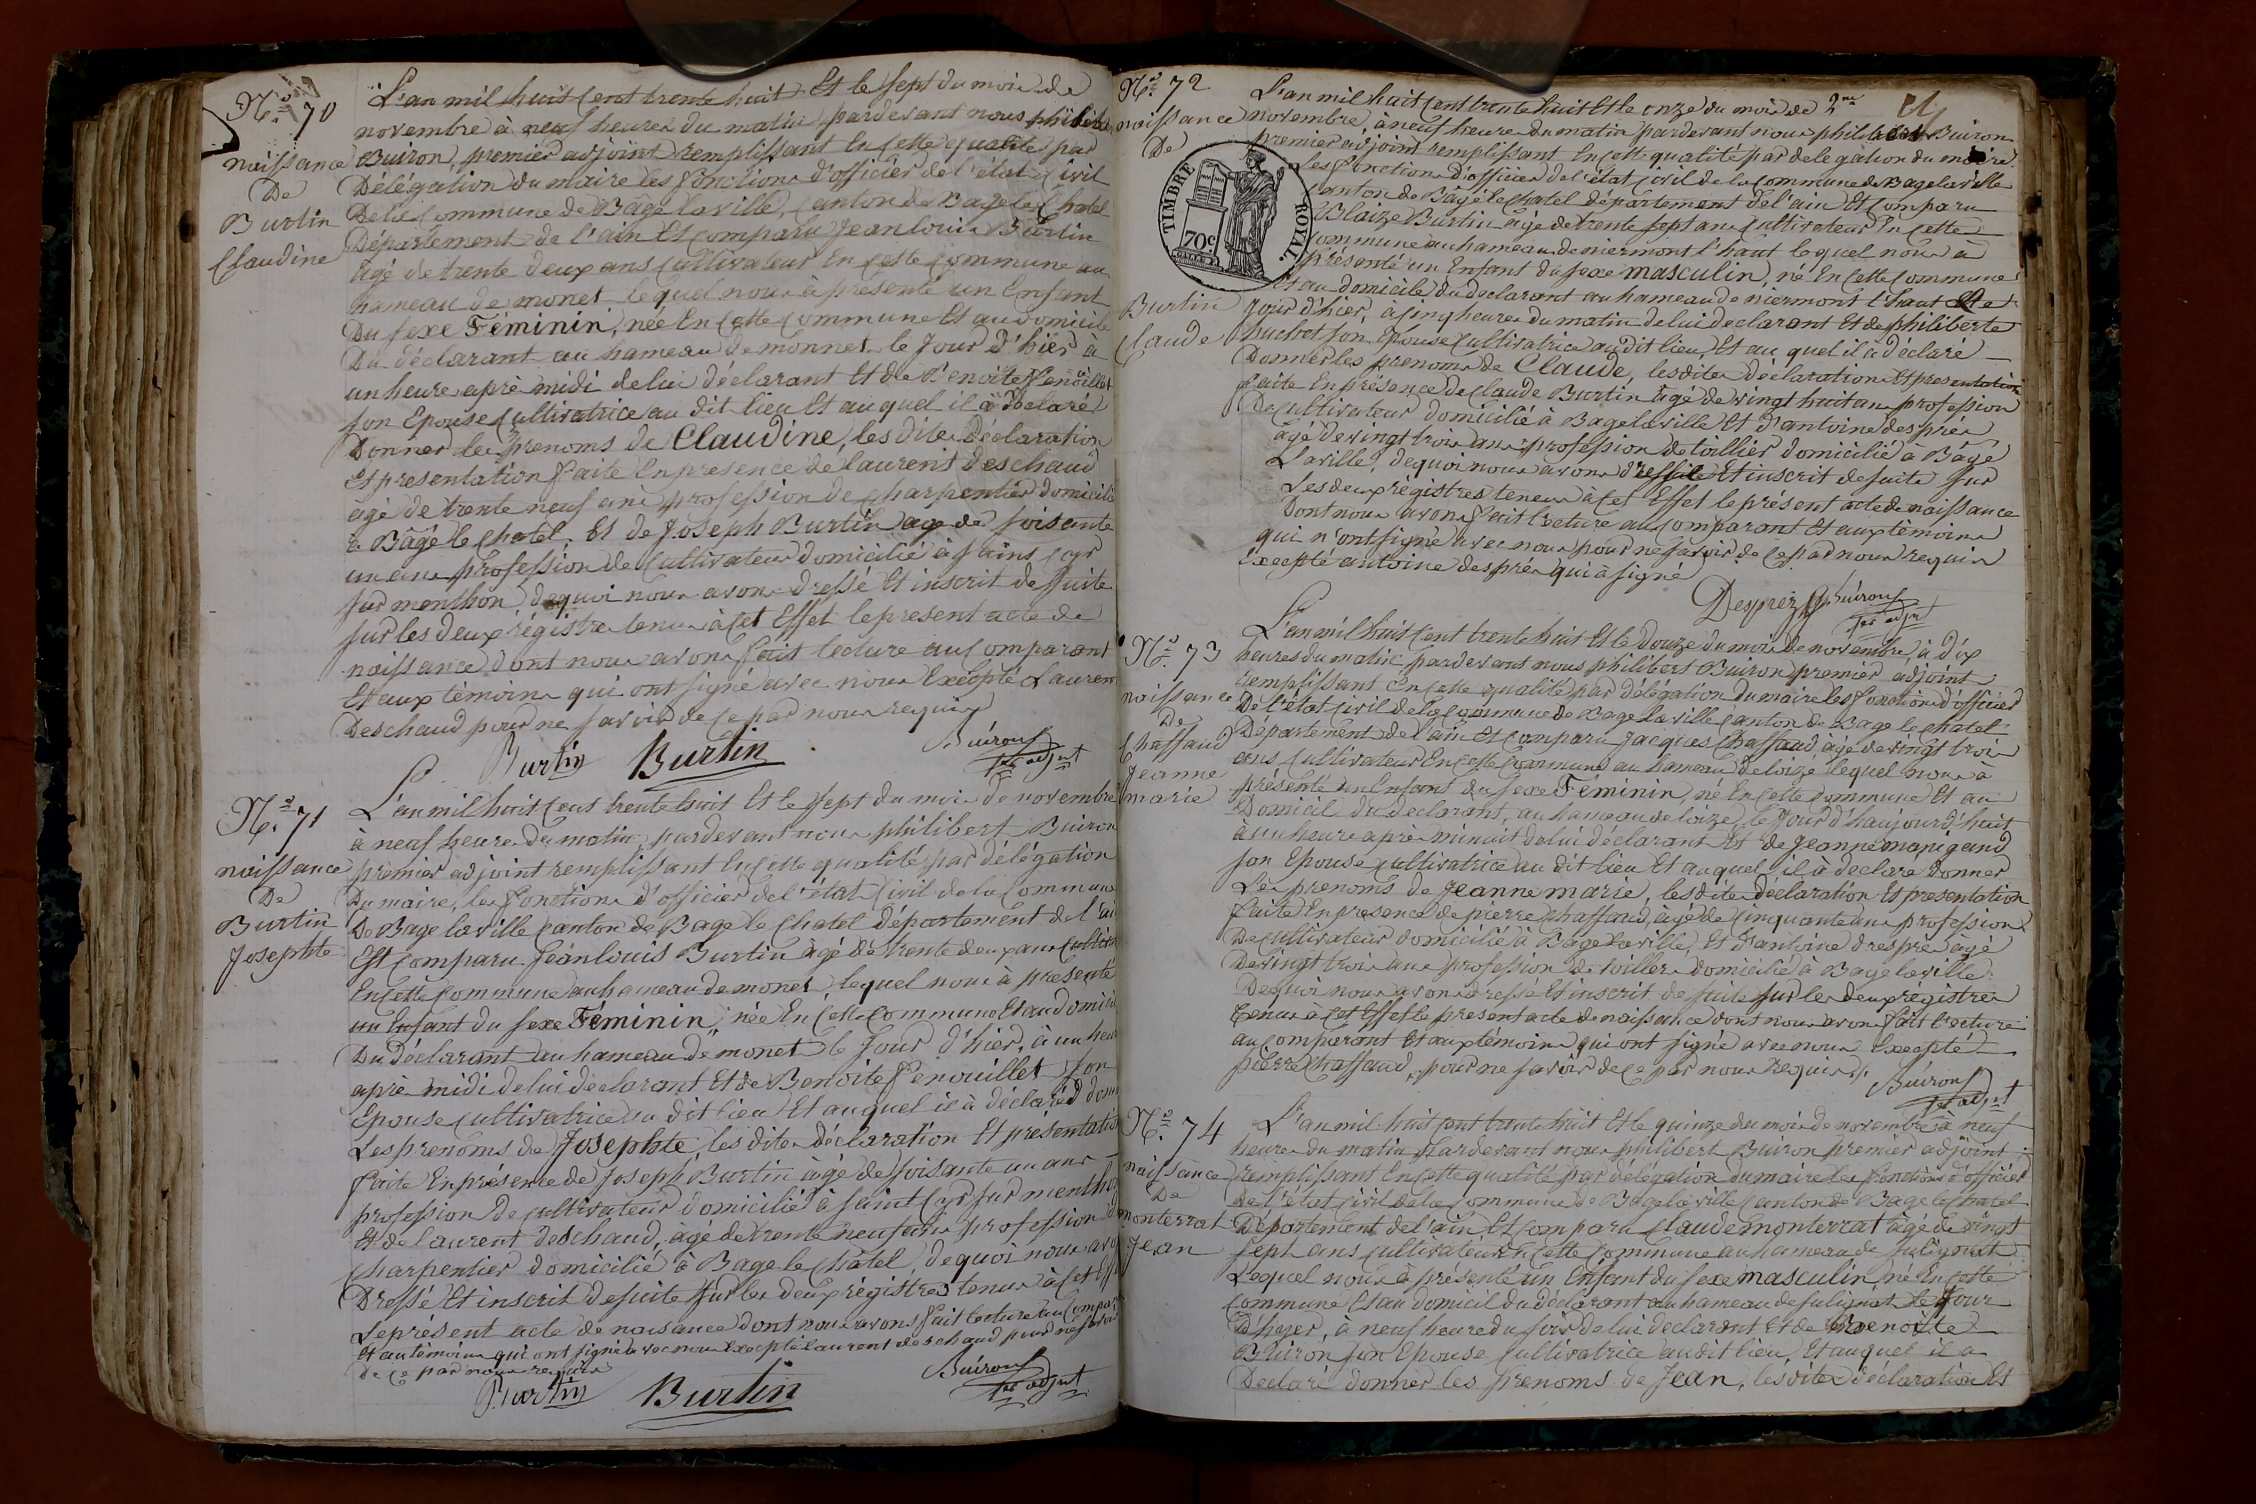 N.º 70
naissance
De
Burtin
Claudine
L'an mil huit cent trente huit Et le sept du mois de
novembre à neuf heures du matin pardevant nous philibert
Buiron, premier adjoint remplissant En cette qualité par
Délégation du maire les fonctions d'officier de l'état Civil
De la Commune de Bagé la ville, canton de Bagé le Chatel
Département de l'ain Et comparu Jean louis Burtin
agé de trente deux ans Cultivateur En cette Commune au
hameau de monet lequel nous à présenté un Enfant
Du sexe Féminin, née En cette Commune Et au domicile
Du déclarant au hameau de monnet le Jour d'hier à
un heure aprè midi de lui déclarant Et de Benoite fenouillet
son Epouse Cultivatrice au dit lieu Et au quel il à declaré
Donner les prenoms de Claudine, les dites Déclaration
Et presentation faite En presence de laurent deschaud
agé de trente neuf ans profession de charpentier domicilié
à Bâgé le chatel, Et de Joseph Burtin agé de soisante
un ans profession de Cultivateur domicilié à sains cyr
sur menthon, de quoi nous avons dressé Et inscrit de suite
sur les deux régistre tenus à cet Effet le present acte de
naissance dont nous avons fait lecture au Comparant
Et aux témoins qui ont signé avec nous Excepté Laurent
Deschaud pour ne savoir de ce par nous requis
Burtin Burtin Buiron
1er adjnt
N.º 71
naissance
De
Burtin
Josephte
L'an mil huit cent trente huit Et le sept du mois de novembre
à neuf heures du matin, pardevant nous philibert Buiron
premier adjoint remplissant En cette qualité par délégation
Du maire, les fonctions d'officier de l'état Civil de la Commune
De Bage la ville canton de Bage le Chatel département de l'ain
Est comparu Jean louis Burtin âgé de trente deux ans
En cette Commune au hameau de monet, lequel nous à presenté
un Enfant du sexe Féminin, née En cette Commune Et au
Du déclarant au hameau de monet le Jour d'hier, à un
aprè midi de lui déclarant Et de Benoite fenouillet son
Epouse Cultivatrice au dit lieu Et au quel il à déclaré
Les prenoms de Josephte, les dites déclaration Et présentation
faite En présence de Joseph Burtin âgé de soisante un ans
profession de cultivateur domicilié à saint Cyr sur
Et de laurent deschaud, âgé de trente neuf ans profession
charpentier domicilié à Bage le chatel, de quoi nous
Dressé Et inscrit de suite sur les deux régistres tenus à cet
Le présent acte de naisance dont nous avons fait lecture au
Et au témoins qui ont signé avec nous Excepté laurent deschaud pour ne
de ce par nous requis
Burtin Burtin Buiron
1er adjnt
N.º 72
naissance
De
Burtin
Claude
TIMBRE ROYAL.
70c
L'an mil huit cent trente huit Et le onze du mois de
novembre, à neuf heures du matin pardevant nous philibert Buiron
premier adjoint remplissant En cette qualité par delegation du maire
les fonctions d'officier de l'état civil de la Commune de Bage la ville
canton de Bâgé le chatel département de l'ain Et comparu
Blaize Burtin âgé de trente sept ans Cultivateur En cette
Commune au hameau de niermont l'haut lequel nous à
présenté un Enfant du sexe masculin, né En cette Commune
Et au domicile du declarant au hameau de niermont l'haut le
jour d'hier, à cinq heures du matin de lui declarant Et de philiberte
huchet son Epouse Cultivatrice au dit lieu, Et au quel il à déclaré
Donner les prenoms de Claude, les dites déclaration Et presentation
faite En présence de Claude Burtin âgé de vingt huit ans profession
De cultivateur domicilié à Bage la ville Et d'antoine desprès
âgé de vingt trois ans profession de toillier domicilié à Bâgé
La ville, de quoi nous avons dressé Et inscrit de suite sur
Les deux régistres tenus à cet Effet le présent acte de naissance
Dont nous avons fait lecture au Comparant Et aux témoins
qui n'ont signé avec nous pour ne savoir de ce par nous requis
Excepté antoine desprès qui à signé
Desprez Buiron
1er adjnt
N.º 73
naissance
De
Chaffaud
Jeanne
marie
L'an mil huit cent trente huit Et le douze du mois de novembre à dix
heures du matin, pardevant nous philibert Buiron premier adjoint
remplissant En cette qualité par délégation du maire les fonctions d'officier
De l'état civil de la Commune de Bage la ville canton de Bage le chatel
Département de l'ain Et comparu Jacques Chaffaud âgé de vingt trois
ans Cultivateur En cette Commune au hameau de loize lequel nous à
présenté un Enfant du sexe Féminin né En cette Commune Et au
Domicil du declarant, au hameau de loize, le Jour d'haujourd'huit
à un heure aprè minuit de lui déclarant Et de Jeanne manigand
son Epouse cultivatrice au dit lieu Et au quel il à declaré donner
Les prenoms de Jeanne marie, les dites déclaration Et presentation
faite En presence de pierre chaffaud, agé de Cinquante ans profession
De cultivateur domicilié à Bage la ville, Et d'antoine desprè âgé
De vingt trois ans profession de toillier domicilié à Bage la ville
De quoi nous avons dressé Et inscrit de suite sur les deux régistres
tenus à cet Effet le present acte de naissance dont nous avons fait lecture
au comparant Et aux témoins qui ont signé avec nous Excepté
pierre Chaffaud, pour ne savoir de ce par nous requis.
Buiron
1er adjnt
N.º 74
naissance
De
monterrat
Jean
L'an mil huit cent trente huit Et le quinze du mois de novembre à neuf
heures du matin pardevant nous philibert Buiron premier adjoint
remplissant En cette qualité par délégation du maire les fonctions d'officier
De l'état civil de la Commune de Bage la ville Canton de Bage le chatel
Département de l'ain Et comparu Claude monterrat âgé de vingt
sept ans Cultivateur En cette Commune au hameau de sulignat
Lequel nous à présenté un Enfant du sexe masculin né En cette
Commune Et au domicil du déclarant au hameau de sulignat le Jour
D'hyer, à neuf heure du soir de lui declarant Et de Benoite
Buiron son Epouse Cultivatrice au dit lieu, Et au quel il a
Déclaré donner les prenoms de Jean, les dites déclaration Et